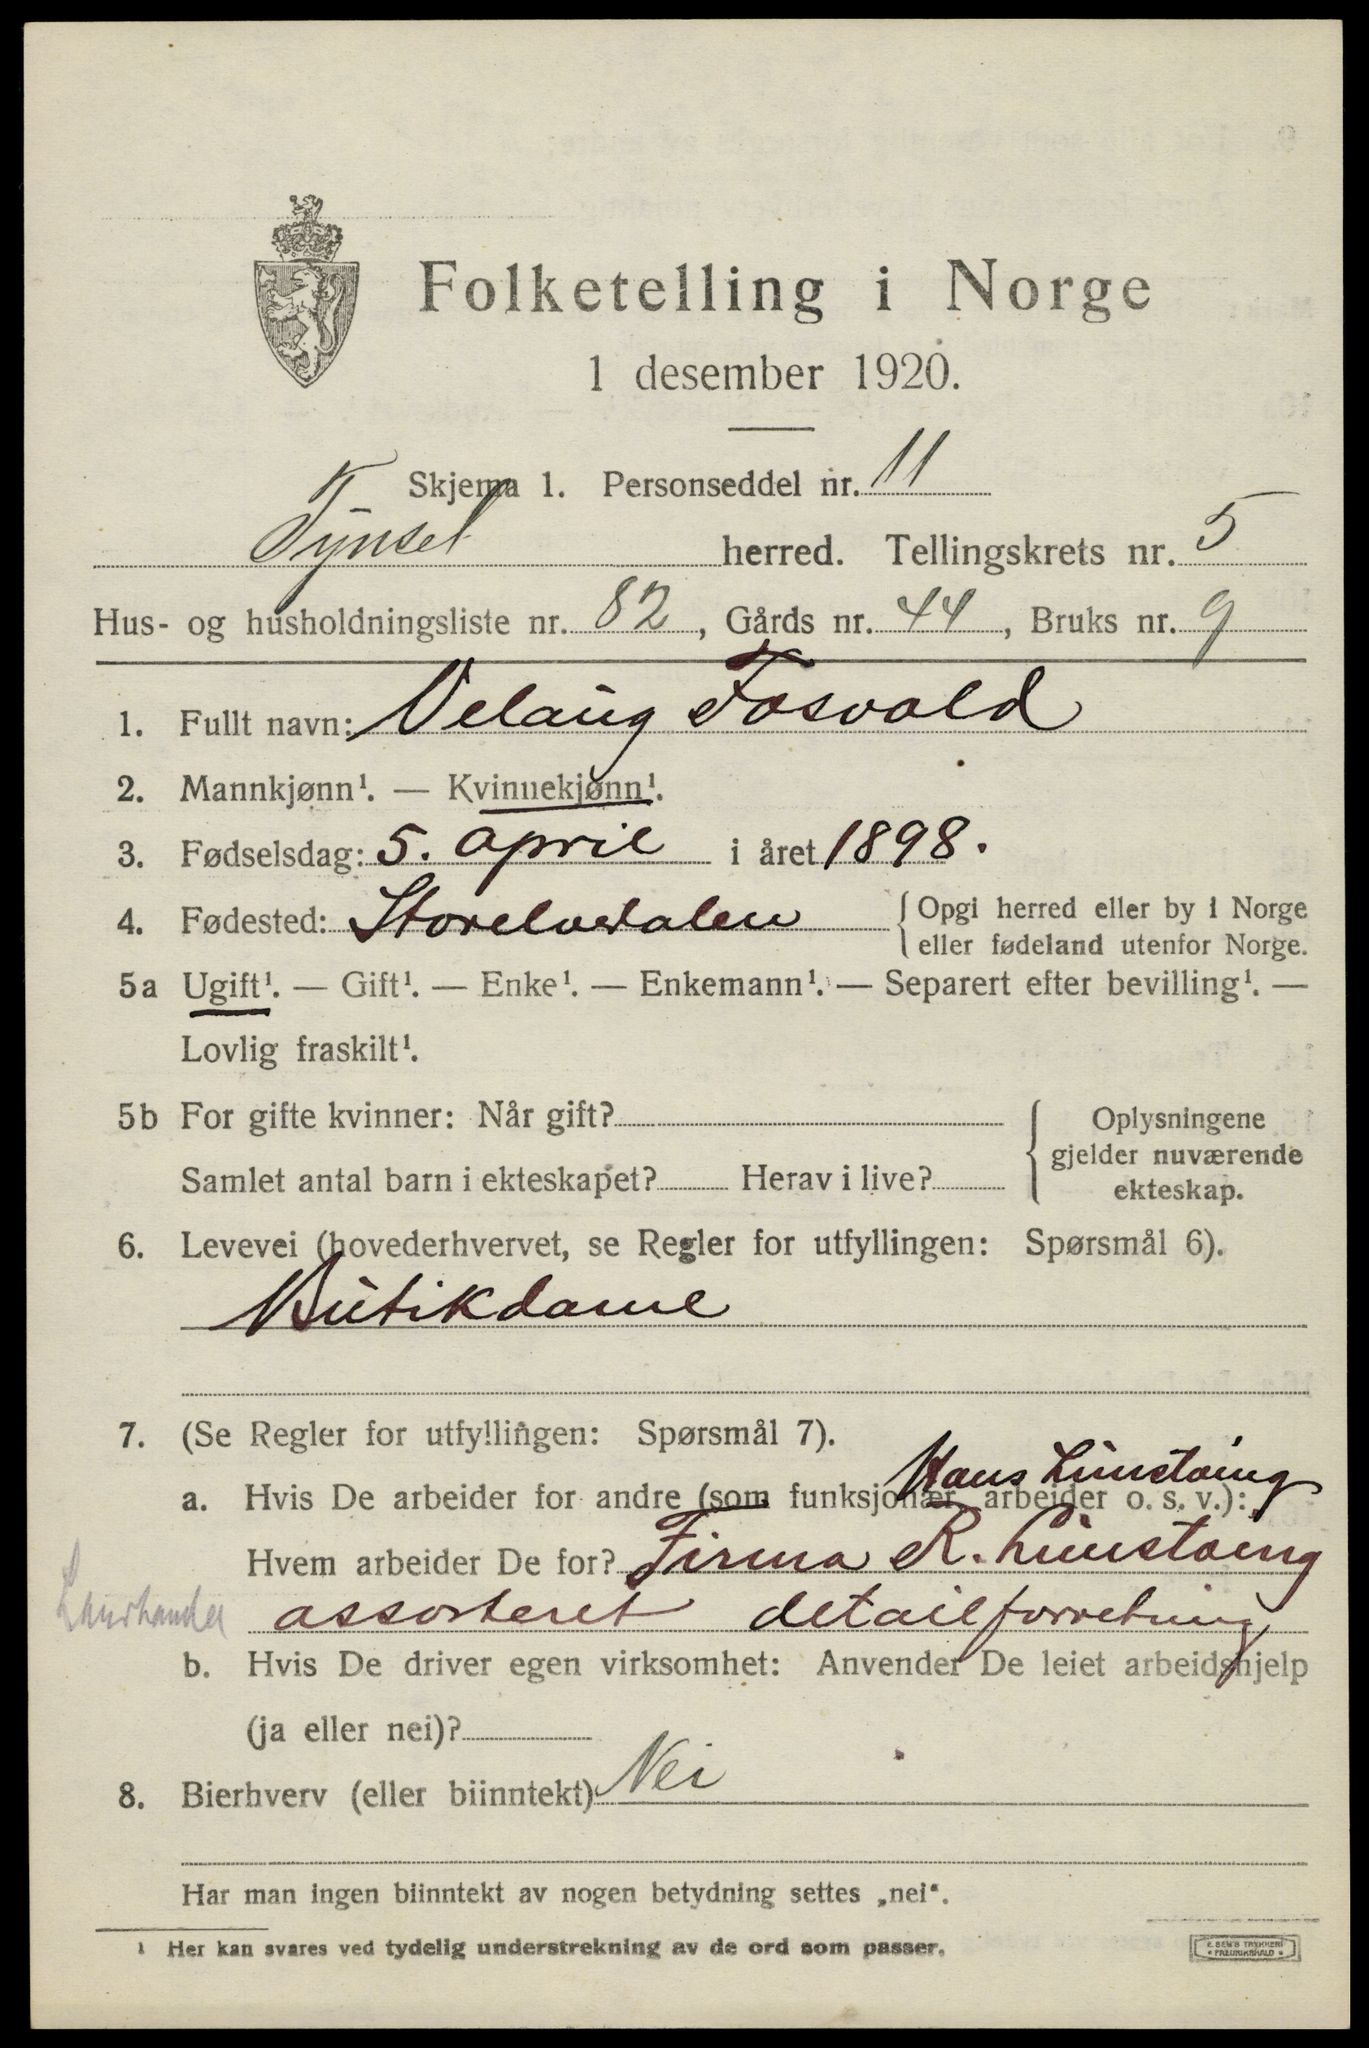 Folketelling i Norge
1 desember 1920.
Skjema 1. Personseddel nr. 11
Tynset herred. Tellingskrets nr. 5
Hus- og husholdningsliste nr. 82, Gårds nr. 44, Bruks nr. 9
1. Fullt navn: Velaug Fosvold
2. Mannkjønn¹. — Kvinnekjønn¹.
3. Fødselsdag: 5. April i året 1898.
4. Fødested: Storelvedalen { Opgi herred eller by i Norge
eller fødeland utenfor Norge.
5a Ugift¹. — Gift¹. — Enke¹. — Enkemann¹. — Separert efter bevilling¹. —
Lovlig fraskilt¹.
5b For gifte kvinner: Når gift? { Oplysningene
gjelder nuværende
Samlet antal barn i ekteskapet? Herav i live? ekteskap.
6. Levevei (hovederhvervet, se Regler for utfyllingen: Spørsmål 6).
Butikdame
7. (Se Regler for utfyllingen: Spørsmål 7).
Hans
a. Hvis De arbeider for andre (som funksjonær, arbeider o. s. v.):
Hvem arbeider De for? Firma R.
Landhandel assorteret detailforretning
b. Hvis De driver egen virksomhet: Anvender De leiet arbeidshjelp
(ja eller nei)?
8. Bierhverv (eller biinntekt) Nei
Har man ingen biinntekt av nogen betydning settes „nei".
¹ Her kan svares ved tydelig understrekning av de ord som passer.
E. SEM'S TRYKKERI
• FREDRIKSHALD •